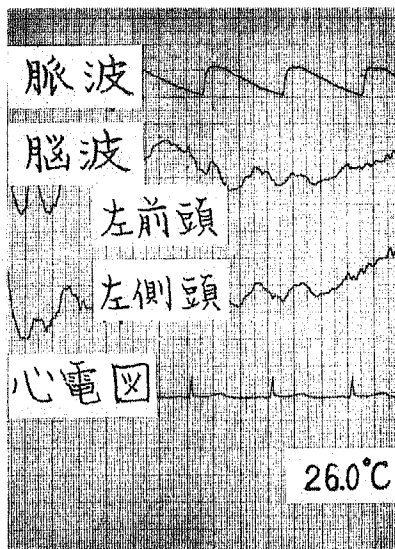 脈波
脳波
左前頭
左側頭
心電図
26.0°C